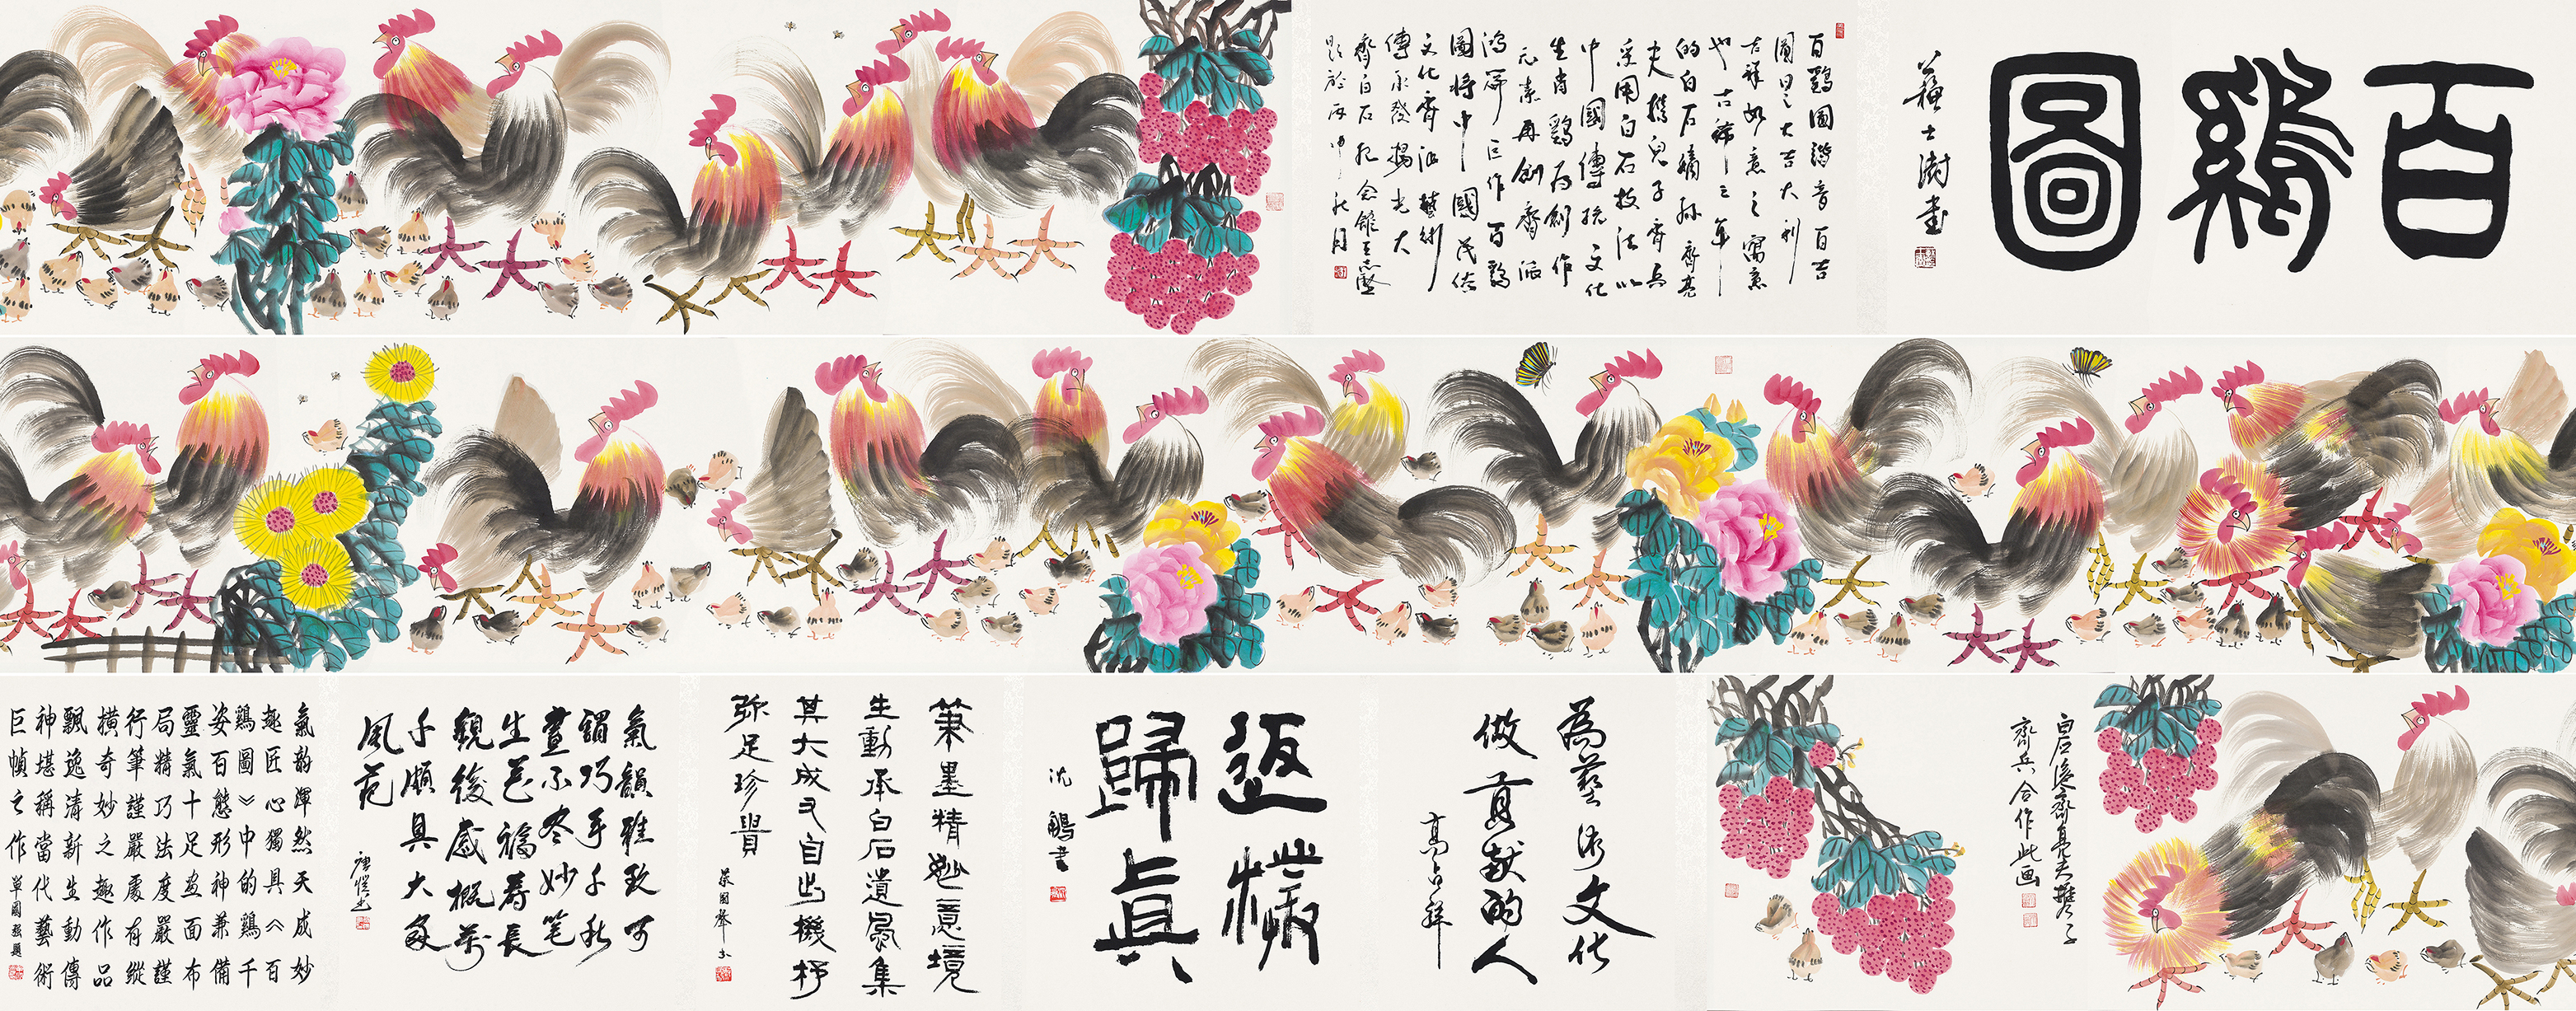 百鷄圖
蘇士澍書
百鷄圖諧音百吉
圖因之大吉大利
吉祥如意之寓意
也古稀之年
的白石嫡孫齊亮
夫攜兒子齊兵
采用白石技法以
中國傳統文化
生肖鷄为創作
元素再創齊派
鴻篇巨作百鷄
圖將中國民俗
文化齊派藝術
傳承發揚光大
齊白石紀念館王志堅
題於丙申秋月
白石後裔齊亮夫攜子
齊兵合作此画
為藝術文化
做貢献的人
高占祥
返樸
歸真
沈鵬書
筆墨精妙意境
生動承白石遺風集
其大成又自出機杼
弥足珍貴
蔡國聲書
氣韻雅致可
謂巧手千秋
畫不尽妙笔
生花福壽長
觀後感概萬
千頗具大家
風范
氣韵渾然天成妙
趣匠心獨具《百
鷄圖》中的鷄千
姿百態形神兼備
靈氣十足画面布
局精巧法度嚴謹
行筆謹嚴處有縱
橫奇妙之趣作品
飄逸清新生動傳
神堪稱當代藝術
巨幀之作 單國强題